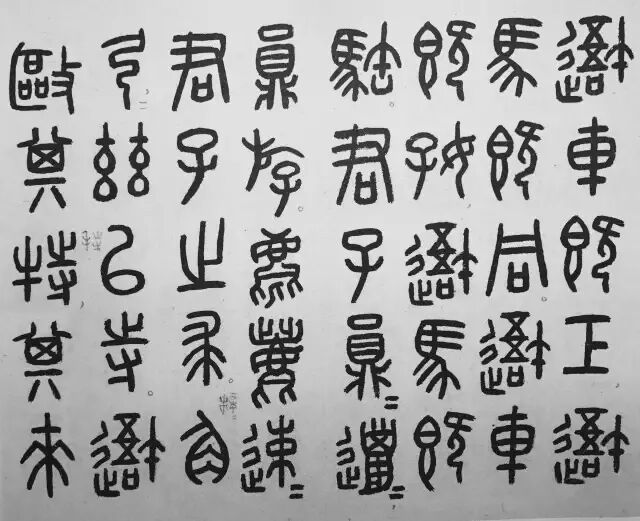 吾車既工吾
馬既同吾車
既好吾馬既
君子員=邋=
員斿麀鹿速=
君子之求角
弓茲以寺吾
敺其特其來